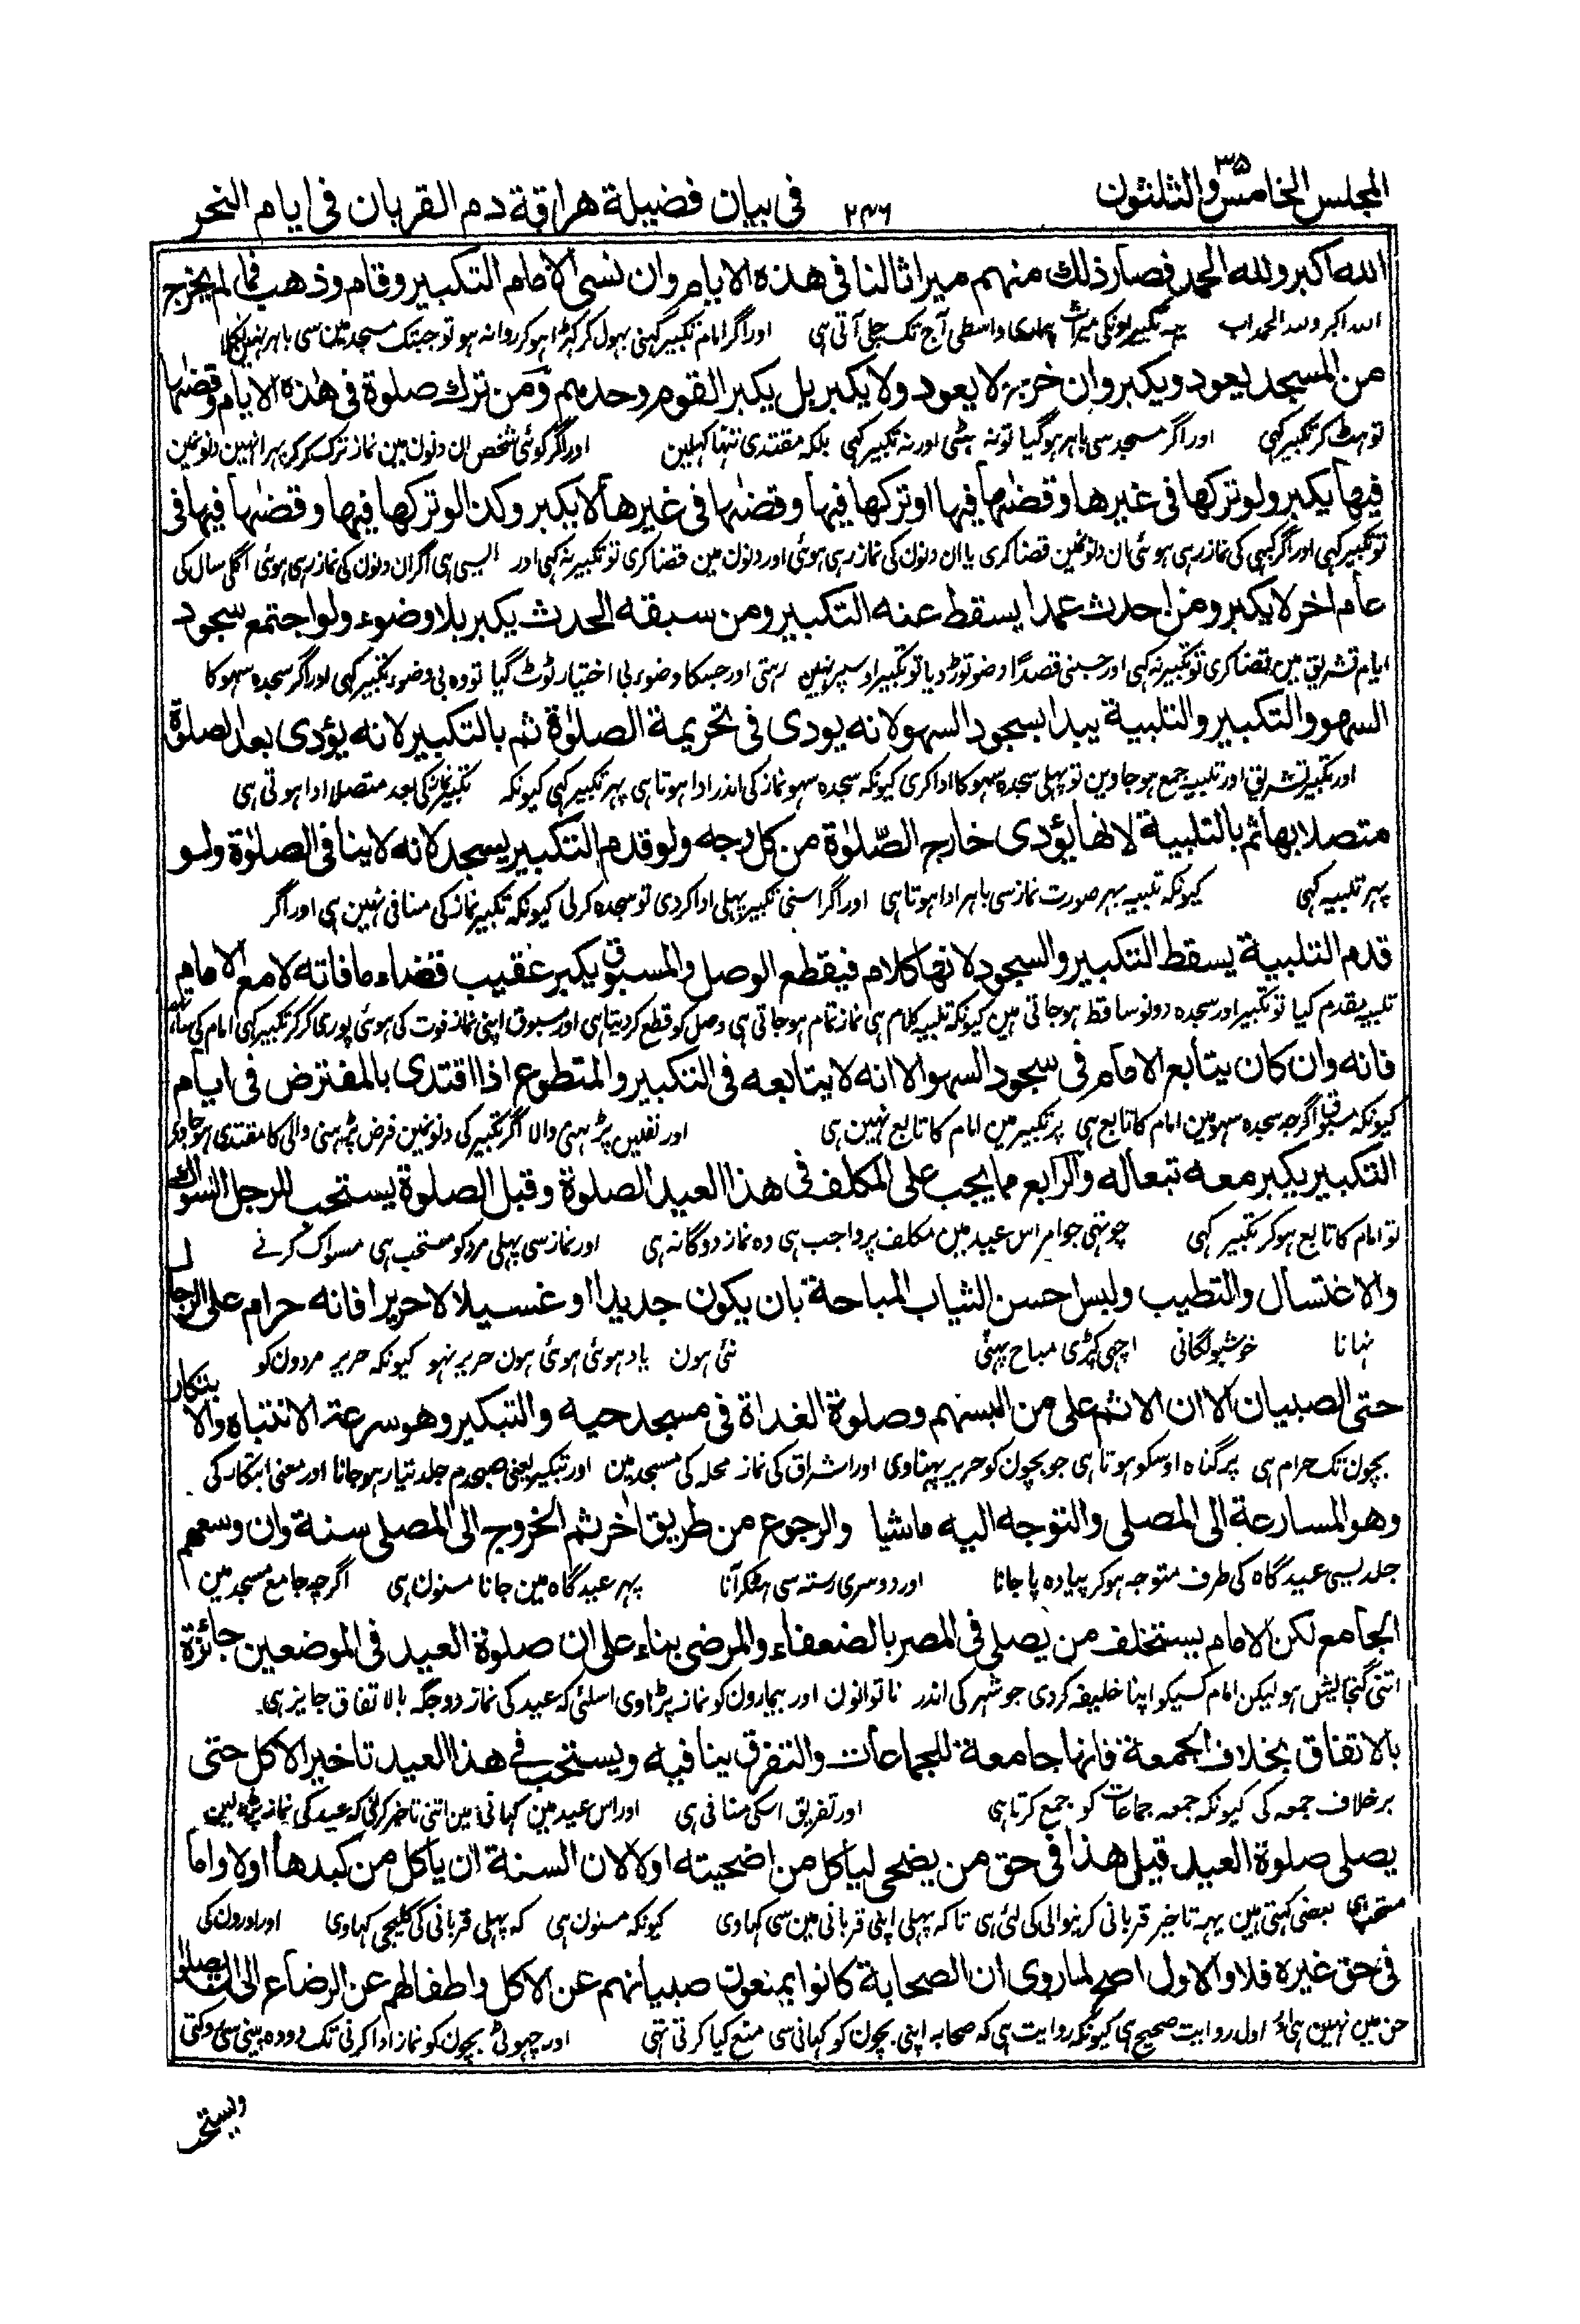 المجلس الخامس والثلثون ۳۵
۲۴۶
فى بيان فضيلة هراقة دم القربان فى ايام النحر
الله اكبر ولله الحمد فصار ذلك منهم ميراثا لنا فى هذه الايام وان نسى الامام التكبير وقام وذهب فما لم يخرج
الله اکبر ولله الحمد اب یہ تکبیر اونکی میراث ہماری واسطی آج تک چلی آتی ہی اور اگر امام تکبیر کہنی بہول کر کہڑا ہو کر روانہ ہو تو جبتک مسجد مین سی باہر نہین نکلا
من المسجد يعود ويكبر وان خرج لا يعود ولا يكبر بل يكبر القوم وحدهم ومن ترك صلوة فى هذه الايام وقضىها
تو ہٹ کر تکبیر کہی اور اگر مسجد سی باہر ہو گیا تو نہ ہٹی اور نہ تکبیر کہی بلکہ مقتدی تنہا کہلین اور اگر کوئی شخص ان دنون مین نماز ترک کر کر پہر انہین دنونمین
فيها يكبر ولو تركها فى غيرها وقضىها فيها او تركها فيها وقضىها فى غيرها لا يكبر وكذا لو تركها فيها وقضىها فيها فى
تو تکبیر کہی اور اگر کبہی کی نماز رہی ہوئی ان دنونمین قضا کری یا ان دنون کی نماز رہی ہوئی اور دنون مین قضا کری تو تکبیر نہ کہی اور ایسی ہی اگر ان دنون کی نماز رہی ہوئی اگلی سال کی
عام اخر لا يكبر ومن احدث عمدا يسقط عنه التكبير ومن سبقه الحدث يكبر بلا وضوء ولو اجتمع سجود
ایام تشریق مین قضا کری تو تکبیر نہ کہی اور جسنی قصدًا وضو توڑ دیا تو تکبیر اوسپر نہین رہتی اور جسکا وضوء بی اختیار ٹوٹ گیا تو وہ بی وضوء تکبیر کہی اور اگر سجدہ سہو کا
السهو والتكبير والتلبية يبدا بسجود السهو لانه يودى فى تحريمة الصلوة ثم بالتكبير لانه يؤدى بعد الصلوة
اور تکبیر تشریق اور تلبیہ جمع ہو جاوین تو پہلی سجدہ سہو کا ادا کری کیونکہ سجدہ سہو نماز کی اندر ادا ہوتا ہی پہر تکبیر کہی کیونکہ تکبیر نماز کی بعد متصلا ادا ہوتی ہی
متصلا بها ثم بالتلبية لانها يؤدى خارج الصلوة من كل وجه ولو قدم التكبير يسجد لانه لا ينافى الصلوة ولو
پہر تلبیہ کہی کیونکہ تلبیہ بہر صورت نماز سی باہر ادا ہوتا ہی اور اگر اسنی تکبیر پہلی ادا کردی تو سجدہ کرلی کیونکہ تکبیر نماز کی منافی نہین ہی اور اگر
قدم التلبية يسقط التكبير والسجود لانها كلام فيقطع الوصل والمسبوق يكبر عقيب قضاء ما فاته لا مع الامام
تلبیہ مقدم کیا تو تکبیر اور سجدہ دونو ساقط ہو جاتی ہین کیونکہ تلبیہ کلام ہی نماز تمام ہو جاتی ہی وصل کو قطع کردیتا ہی اور مسبوق اپنی نماز فوت کی ہوئی پوری کر کر تکبیر کہی امام کی
فانه وان كان يتابع الامام فى سجود السهو الا انه لا يتابعه فى التكبير والمتطوع اذا اقتدى بالمفترض فى ايام
کیونکہ مسبوق اگرچہ سجدہ سہو مین امام کا تابع ہی پر تکبیر مین امام کا تابع نہین ہی اور نفلین پڑہنی والا اگر تکبیر کی دنونمین فرض پڑہنی والی کا مقتدی ہو جاوی
التكبير يكبر معه تبعا له والرابع مما يجب على المكلف فى هذا العيد الصلوة وقبل الصلوة يستحب للرجل السواك
تو امام کا تابع ہو کر تکبیر کہی چوتہی جو امر اس عید مین مکلف پر واجب ہی وہ نماز دوگانہ ہی اور نماز سی پہلی مرد کو مستحب ہی مسواک کرنے
والاغتسال والتطيب ولبس احسن الثياب المباحة بان يكون جديدا او غسيلا لا حريرا فانه حرام على الرجال
نہانا خوشبو لگانی اچہی کپڑی مباح پہننی نئی ہون یا دہوئی ہوئی ہون حریر نہو کیونکہ حریر مردون کو
حتى الصبيان الا ان الاثم على من البسهم وصلوة الغداة فى مسجد حيه والتبكير وهو سرعة الانتباه والابتكار
بچون تک حرام ہی پر گناہ اوسکو ہوتا ہی جو بچون کو حریر پہناوی اور اشراق کی نماز محلہ کی مسجد مین اور تبکیر یعنی صبحدم جلد تیار ہو جانا اور معنی ابتکار کی
وهو المسارعة الى المصلى والتوجه اليه ماشيا والرجوع من طريق اخر ثم الخروج الى المصلى سنة وان وسعهم
جلد یسی عیدگاہ کی طرف متوجہ ہو کر پیادہ پا جانا اور دوسری رستہ سی ہٹکر آنا پہر عیدگاہ مین جانا مسنون ہی اگرچہ جامع مسجد مین
الجامع لكن الامام يستخلف من يصلى فى المصر بالضعفاء والمرضى بناء على ان صلوة العيد فى الموضعين جائزة
اتنی گنجایش ہو لیکن امام کسیکو اپنا خلیفہ کردی جو شہر کی اندر ناتوانون اور بیمارون کو نماز پڑہاوی اسلئی کہ عید کی نماز دو جگہ بالاتفاق جایز ہی
بالاتفاق بخلاف الجمعة فانها جامعة للجماعات والتفرق ينافيه ويستحب فى هذا العيد تاخير الاكل حتى
برخلاف جمعہ کی کیونکہ جمعہ جماعات کو جمع کرتا ہی اور تفریق اسکی منافی ہی اور اس عید مین کہانی مین اتنی تاخیر کرنی کہ عید کی نماز پڑہ لین
يصلى صلوة العيد قيل هذا فى حق من يضحى لياكل من اضحيته اولا لان السنة ان ياكل من كبدها اولا واما
مستحب ہی بعضی کہتی ہین یہہ تاخیر قربانی کرنیوالی کی لئی ہی تاکہ پہلی اپنی قربانی مین سی کہاوی کیونکہ مسنون ہی کہ پہلی قربانی کی کلیجی کہاوی اور اورون کی
فى حق غيره فلا والاول اصح لما روى ان الصحابة كانوا يمنعون صبيانهم عن الاكل واطفالهم عن الرضاع الى ان يصلوا
حق مین نہین ہی اول روایت صحیح ہی کیونکہ روایت ہی کہ صحابہ اپنی بچون کو کہانی سی منع کیا کرتی تہی اور چہوٹی بچون کو نماز ادا کرنی تک دودہ پینی سی روکتی
ويستحب